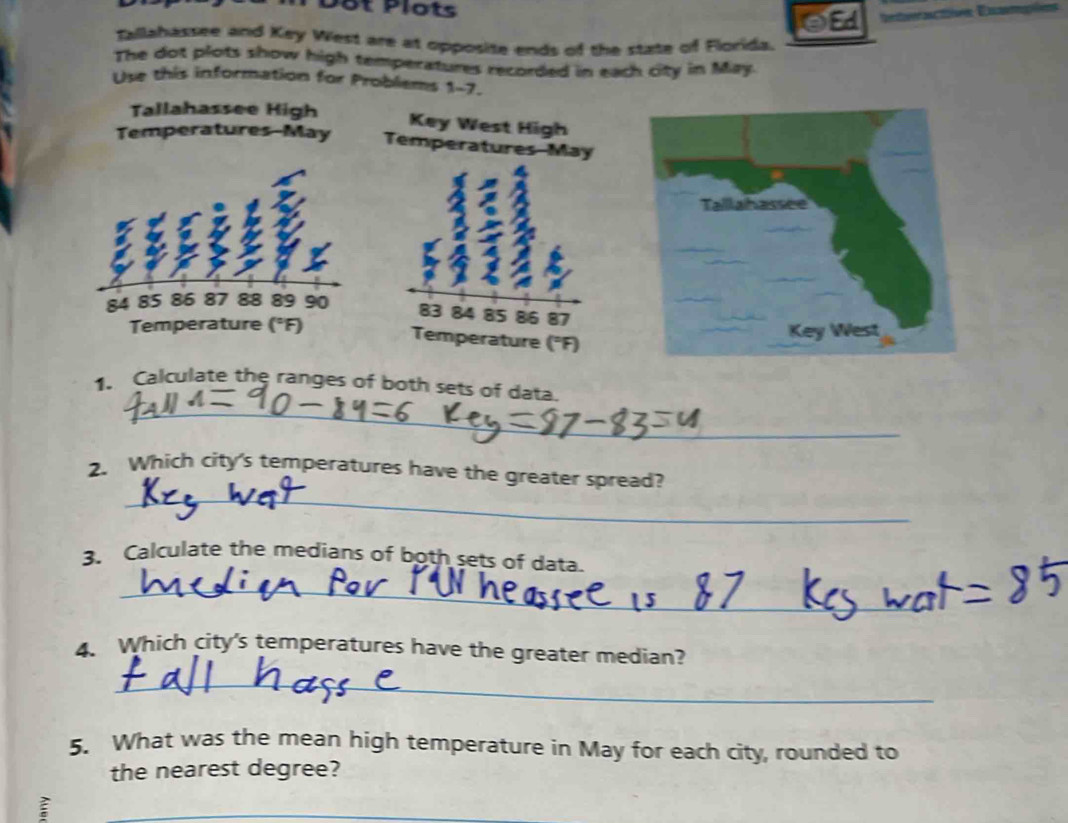 Dot Plots
Ed
Interactive Examples
Tallahassee and Key West are at opposite ends of the state of Florida.
The dot plots show high temperatures recorded in each city in May.
Use this information for Problems 1–7.
Tallahassee High
Temperatures–May
Key West High
Temperatures–May
84 85 86 87 88 89 90
Temperature (°F)
83 84 85 86 87
Temperature (°F)
Tallahassee
Key West
1. Calculate the ranges of both sets of data.
= 90 - 84 = 6 Key = 87 - 83 = 4
2. Which city's temperatures have the greater spread?
Key wat
3. Calculate the medians of both sets of data.
median for is 87 Key wat = 85
4. Which city's temperatures have the greater median?
tall hasse
5. What was the mean high temperature in May for each city, rounded to
the nearest degree?